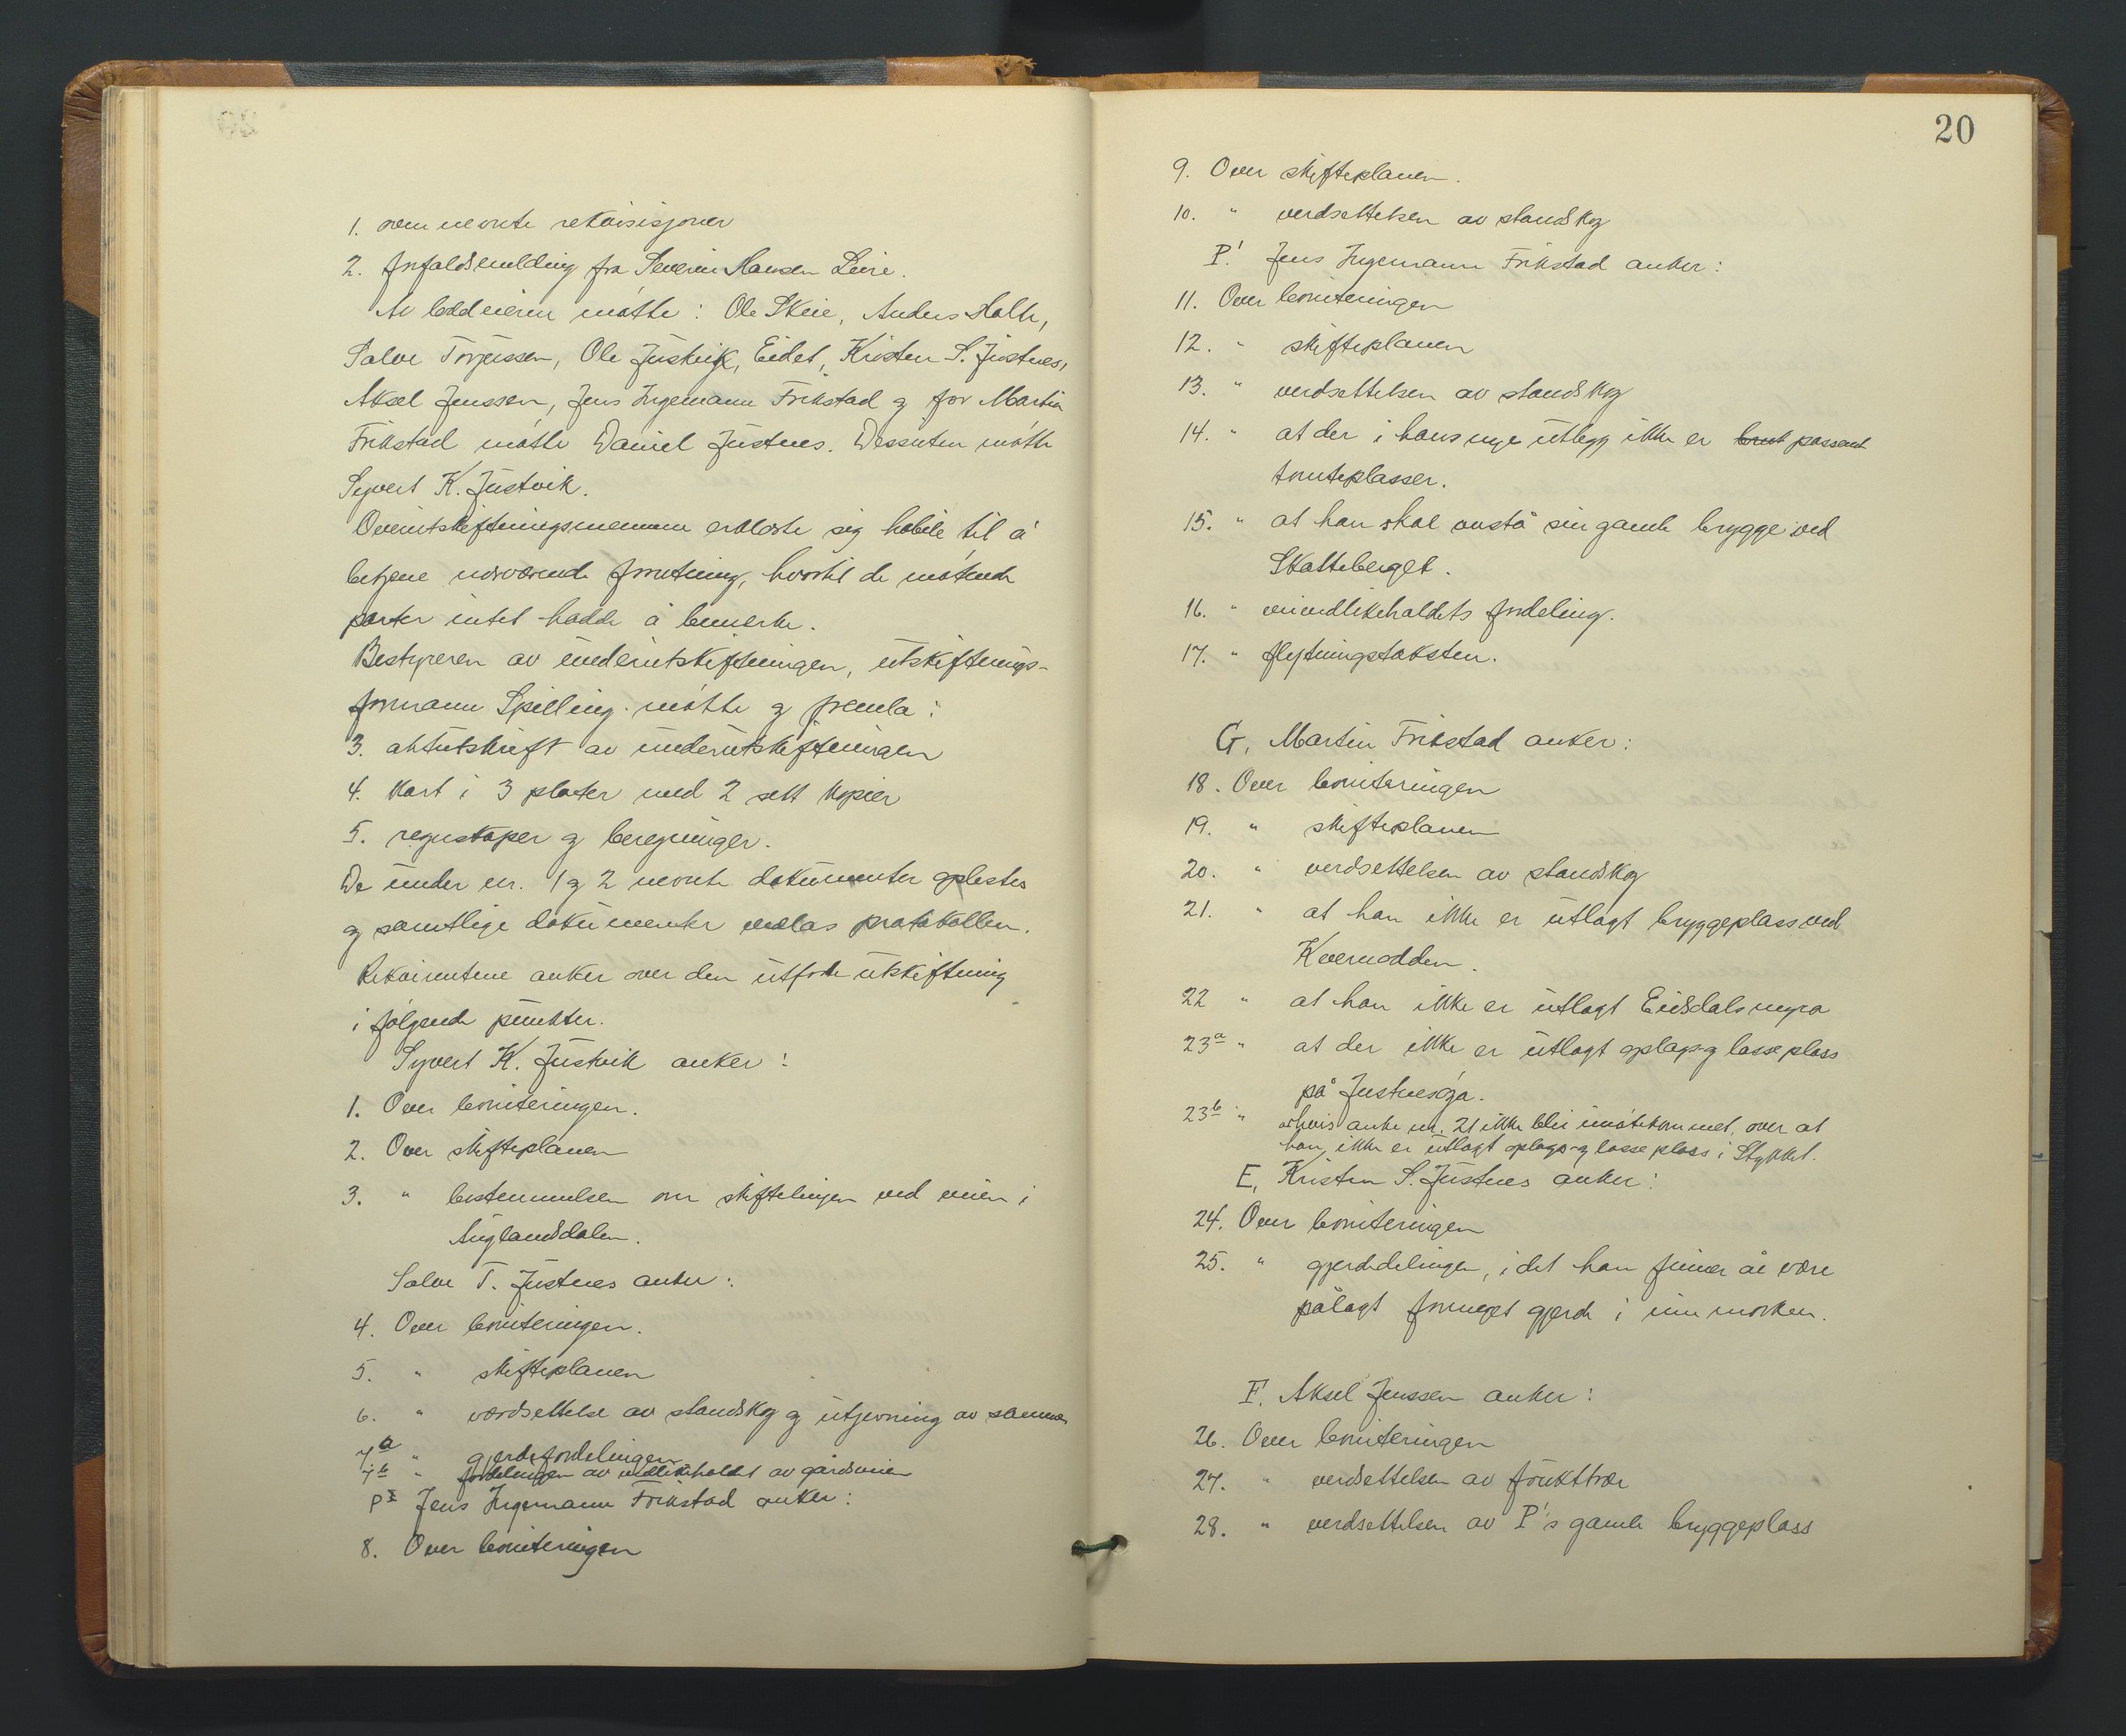 1. ovennevnte rekvisisjoner
2. forfaldsmelding fra Severin Hansen Leire.
Av loddeierne møtte: Ole Skeie, Anders Holte,
Salve Torjussen, Ole Justvik, Eidet, Kristen S. Justnes,
Aksel Jenssen, Jens Ingemann Frikstad og for Martin
Frikstad møtte Daniel Justnes. Dessuten møtte
Syvert K. Justvik.
Overutskiftningsmennene erklærte sig habile til å
betjene nærværende forretning, hvortil de møtende
parter intet hadde å bemerke.
Bestyreren av underutskiftningen, utskiftnings-
formann Spilling møtte og fremla:
3. aktutskrift av underutskiftningen
4. Kart i 3 plater med 2 sett kopier
5. regnskaper og beregninger.
De under nr. 1 og 2 nevnte dokumenter oplestes
og samtlige dokumenter vedlas protokollen.
Rekvirentene anker over den utførte utskiftning
i følgende punkter.
Syvert K. Justvik anker:
1. Over boniteringen.
2. Over skifteplanen
3. " bestemmelsen om skiftelinjen ved veien i
Auglandsdalen.
Salve T. Justnes anker:
4. Over boniteringen.
5. " skifteplanen
6. " værdsettelse av standskog og utjevning av samme
7a " gjerdefordelingen
7b " fordelingen av vedlikeholdet av gårdsveien
PI Jens Ingemann Frikstad anker:
8. Over boniteringen
20
9. Over skifteplanen.
10. " verdsettelsen av standskog
P! Jens Ingemann Frikstad anker:
11. Over boniteringen
12. " skifteplanen
13. " verdsettelsen av standskog
14. " at der i hans nye utlegg ikke er passende
tomteplasser.
15. " at han skal avstå sin gamle brygge ved
Skatteberget.
16. " veivedlikeholdets fordeling.
17. " flytningstaksten.
G. Martin Frikstad anker:
18. Over boniteringen
19. " skifteplanen
20. " verdsettelsen av standskog
21. " at han ikke er utlagt bryggeplass ved
Kvernodden.
22 " at han ikke er utlagt Eidsdalsmyra
23a " at der ikke er utlagt oplags-og losseplass
på Justnesøya.
23b " hvis anke nr. 21 ikke blir imøtekommet, over at
han ikke er utlagt oplags-og losseplass i Stykket.
E, Kristen S. Justnes anker:
24. Over boniteringen
25. " gjerdedelingen, i det han finner å være
pålagt formeget gjerde i innmarken.
F. Aksel Jenssen anker:
26. Over boniteringen
27. " verdsettelsen av frukttrær
28. " verdsettelsen av P's gamle bryggeplass